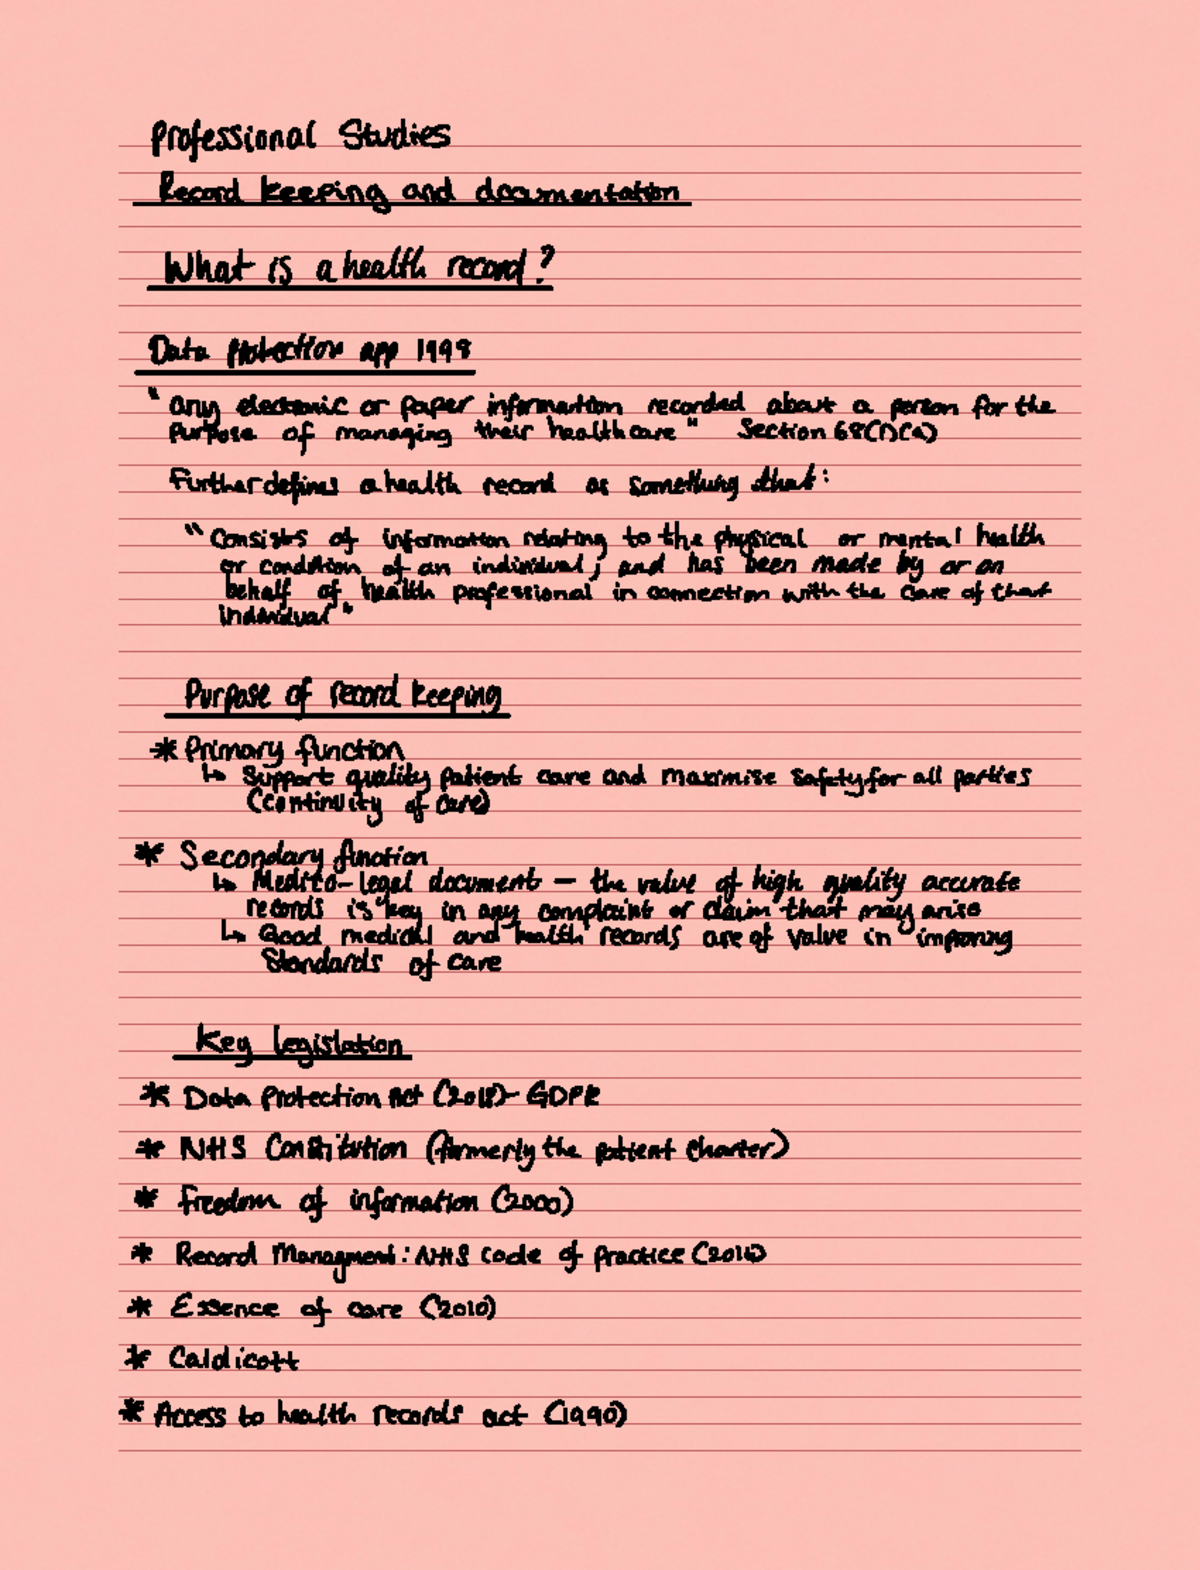 Professional Studies
Record keeping and documentation
What is a health record?
Data Protection app 1998
"any electronic or paper information recorded about a person for the
purpose of managing their healthcare" Section 68(1)(a)
Further defines a health record as something that:
"Consists of information relating to the physical or mental health
or condition of an individual, and has been made by or on
behalf of health professional in connection with the care of that
individual"
Purpose of record keeping
* Primary function
↳ Support quality patient care and maximise safety for all parties
(continuity of care)
* Secondary function
↳ Medico-legal document – the value of high quality accurate
records is key in any complaint or claim that may arise
↳ Good medical and health records are of value in improving
standards of care
Key legislation
* Data Protection Act (2018)- GDPR
* NHS Constitution (formerly the patient charter)
* freedom of information (2000)
* Record Managment: NHS code of practice
* Essence of care (2010)
* Caldicott
* Access to health records act (1990)